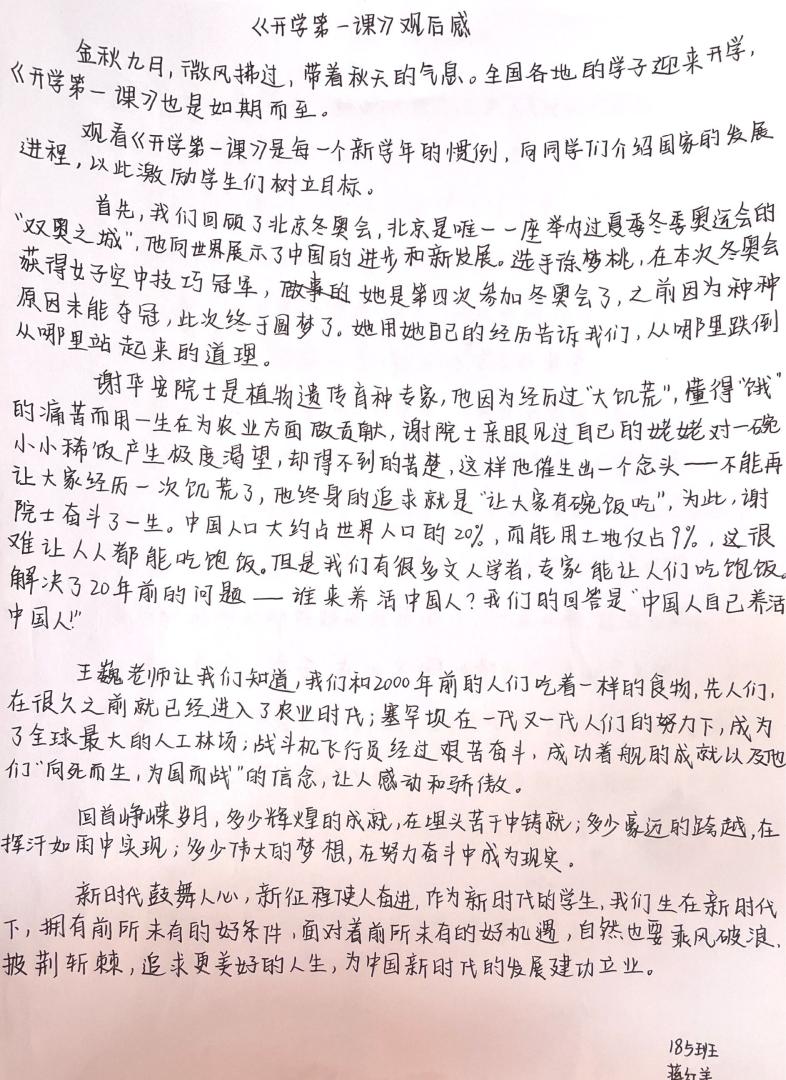 《开学第一课》观后感
金秋九月，微风拂过，带着秋天的气息。全国各地的学子迎来开学，
《开学第一课》也是如期而至。
观看《开学第一课》是每一个新学年的惯例，向同学们介绍国家的发展
进程，以此激励学生们树立目标。
首先，我们回顾了北京冬奥会，北京是唯一一座举办过夏季冬季奥运会的
“双奥之城”，他向世界展示了中国的进步和新发展。选手徐梦桃，在本次冬奥会
获得女子空中技巧冠军，做事的她是第四次参加冬奥会了，之前因为种种
原因未能夺冠，此次终于圆梦了。她用她自己的经历告诉我们，从哪里跌倒
从哪里站起来的道理。
谢华安院士是植物遗传育种专家，他因为经历过“大饥荒”，懂得“饿”
的痛苦而用一生在为农业方面做贡献，谢院士亲眼见过自己的姥姥对一碗
小小稀饭产生极度渴望，却得不到的苦楚，这样他催生出一个念头——不能再
让大家经历一次饥荒了，他终身的追求就是“让大家有碗饭吃”，为此，谢
院士奋斗了一生。中国人口大约占世界人口的20%，而能用土地仅占9%，这很
难让人人都能吃饱饭。但是我们有很多文人学者，专家能让人们吃饱饭。
解决了20年前的问题——谁来养活中国人？我们的回答是“中国人自己养活
中国人！”
王巍老师让我们知道，我们和2000年前的人们吃着一样的食物，先人们，
在很久之前就已经进入了农业时代；塞罕坝在一代又一代人们的努力下，成为
了全球最大的人工林场；战斗机飞行员经过艰苦奋斗，成功着舰的成就以及他
们“向死而生，为国而战”的信念，让人感动和骄傲。
回首峥嵘岁月，多少辉煌的成就，在埋头苦干中铸就；多少豪迈的跨越，在
挥汗如雨中实现；多少伟大的梦想，在努力奋斗中成为现实。
新时代鼓舞人心，新征程使人奋进，作为新时代的学生，我们生在新时代
下，拥有前所未有的好条件，面对着前所未有的好机遇，自然也要乘风破浪，
披荆斩棘，追求更美好的人生，为中国新时代的发展建功立业。
185班
蒋红